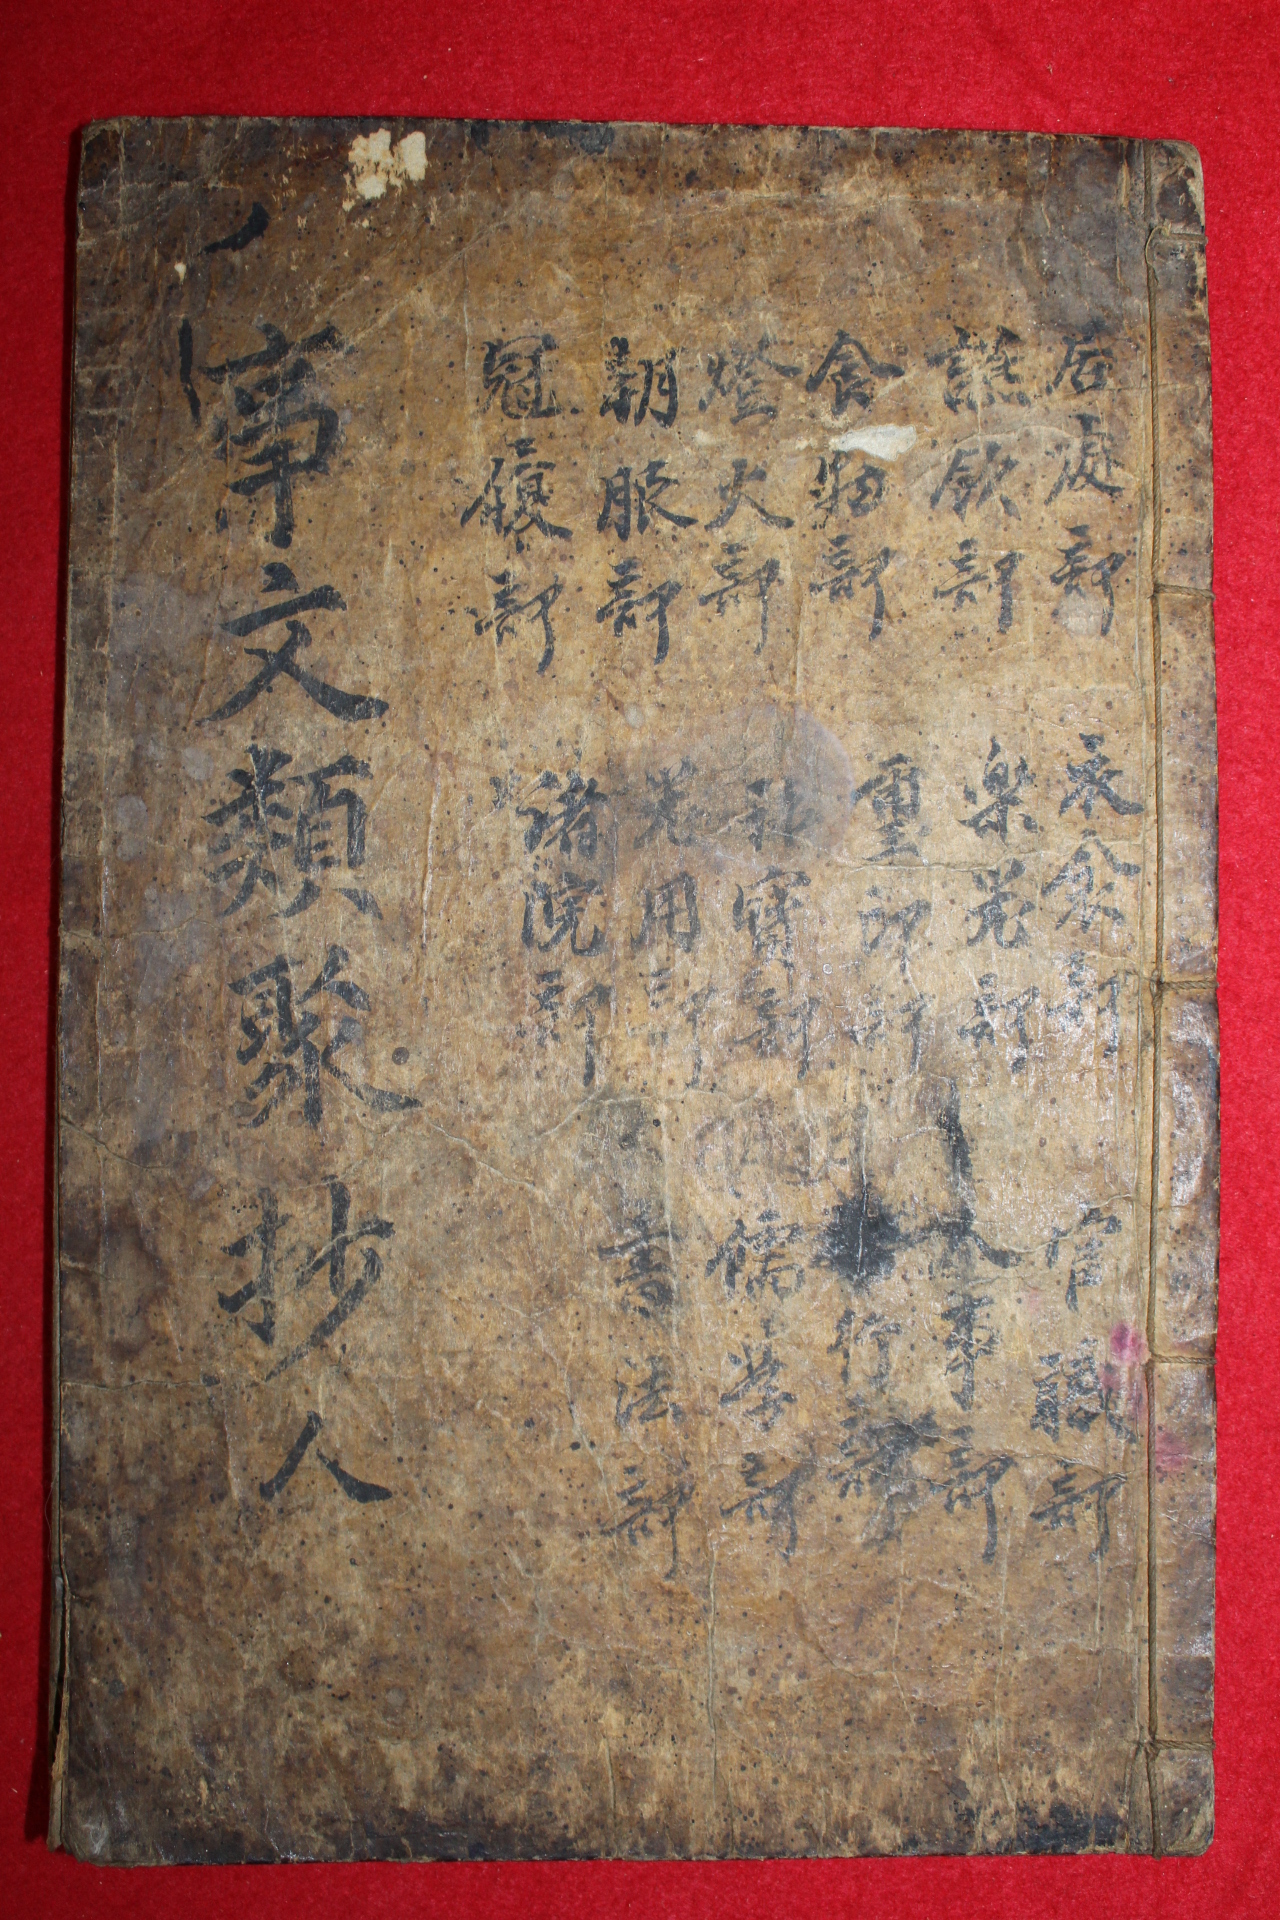 居處部
讌飲部
食物部
燈火部
朝服部
冠履部
衣衾部
樂器部
印部
珎寶部
器用部
諸院部
官職部
人事部
行部
儒学部
書法部
事文類聚抄人